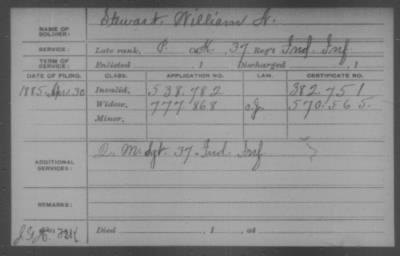 NAME OF SOLDIER: Stewart, William H.
SERVICE: Late rank, P. Co. K, 37 Reg't Ind. Inf
TERM OF SERVICE: Enlisted , 1 Discharged , 1
DATE OF FILING. CLASS. APPLICATION NO. LAW. CERTIFICATE NO.
1885, Apr. 30 Invalid, 538,782 382,751
Widow, 777,868 570,565.
Minor,
ADDITIONAL SERVICES: Q. M. Sgt. 37. Ind. Inf
REMARKS:
Died , 1 , at